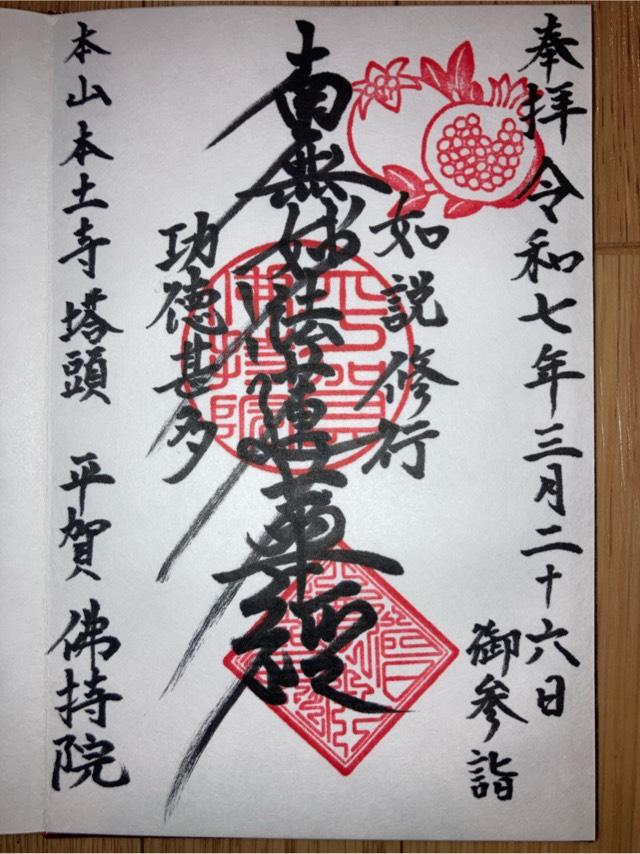 奉拝 令和七年三月二十六日
御参詣
如説修行
南無妙法蓮華経
功徳甚多
本山本土寺塔頭 平賀 佛持院
平賀佛持院